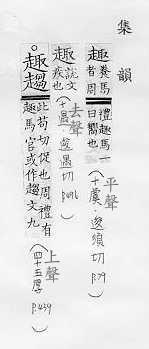 集韻
趣 養馬者周禮趣馬一曰嚮也
平聲
(十虞·逡須切 p.79)
趣 說文疾也
去聲
(十遇·逡遇切 p.496)
趣趨 此苟切促也周禮有趣馬官或作趨文九
上聲
(四十五厚 p.439)